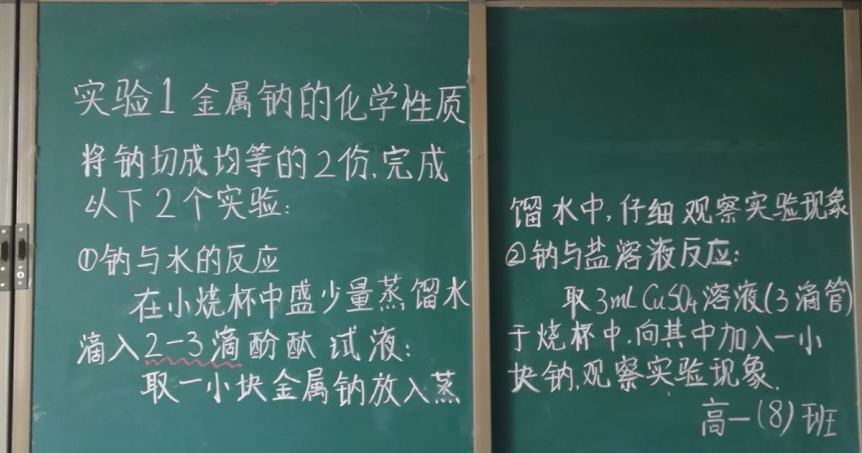 实验1 金属钠的化学性质
将钠切成均等的2份,完成
以下2个实验:
①钠与水的反应
在小烧杯中盛少量蒸馏水
滴入2-3滴酚酞试液:
取一小块金属钠放入蒸
馏水中,仔细观察实验现象
②钠与盐溶液反应:
取3ml CuSO4溶液(3滴管)
于烧杯中.向其中加入一小
块钠,观察实验现象.
高一(8)班